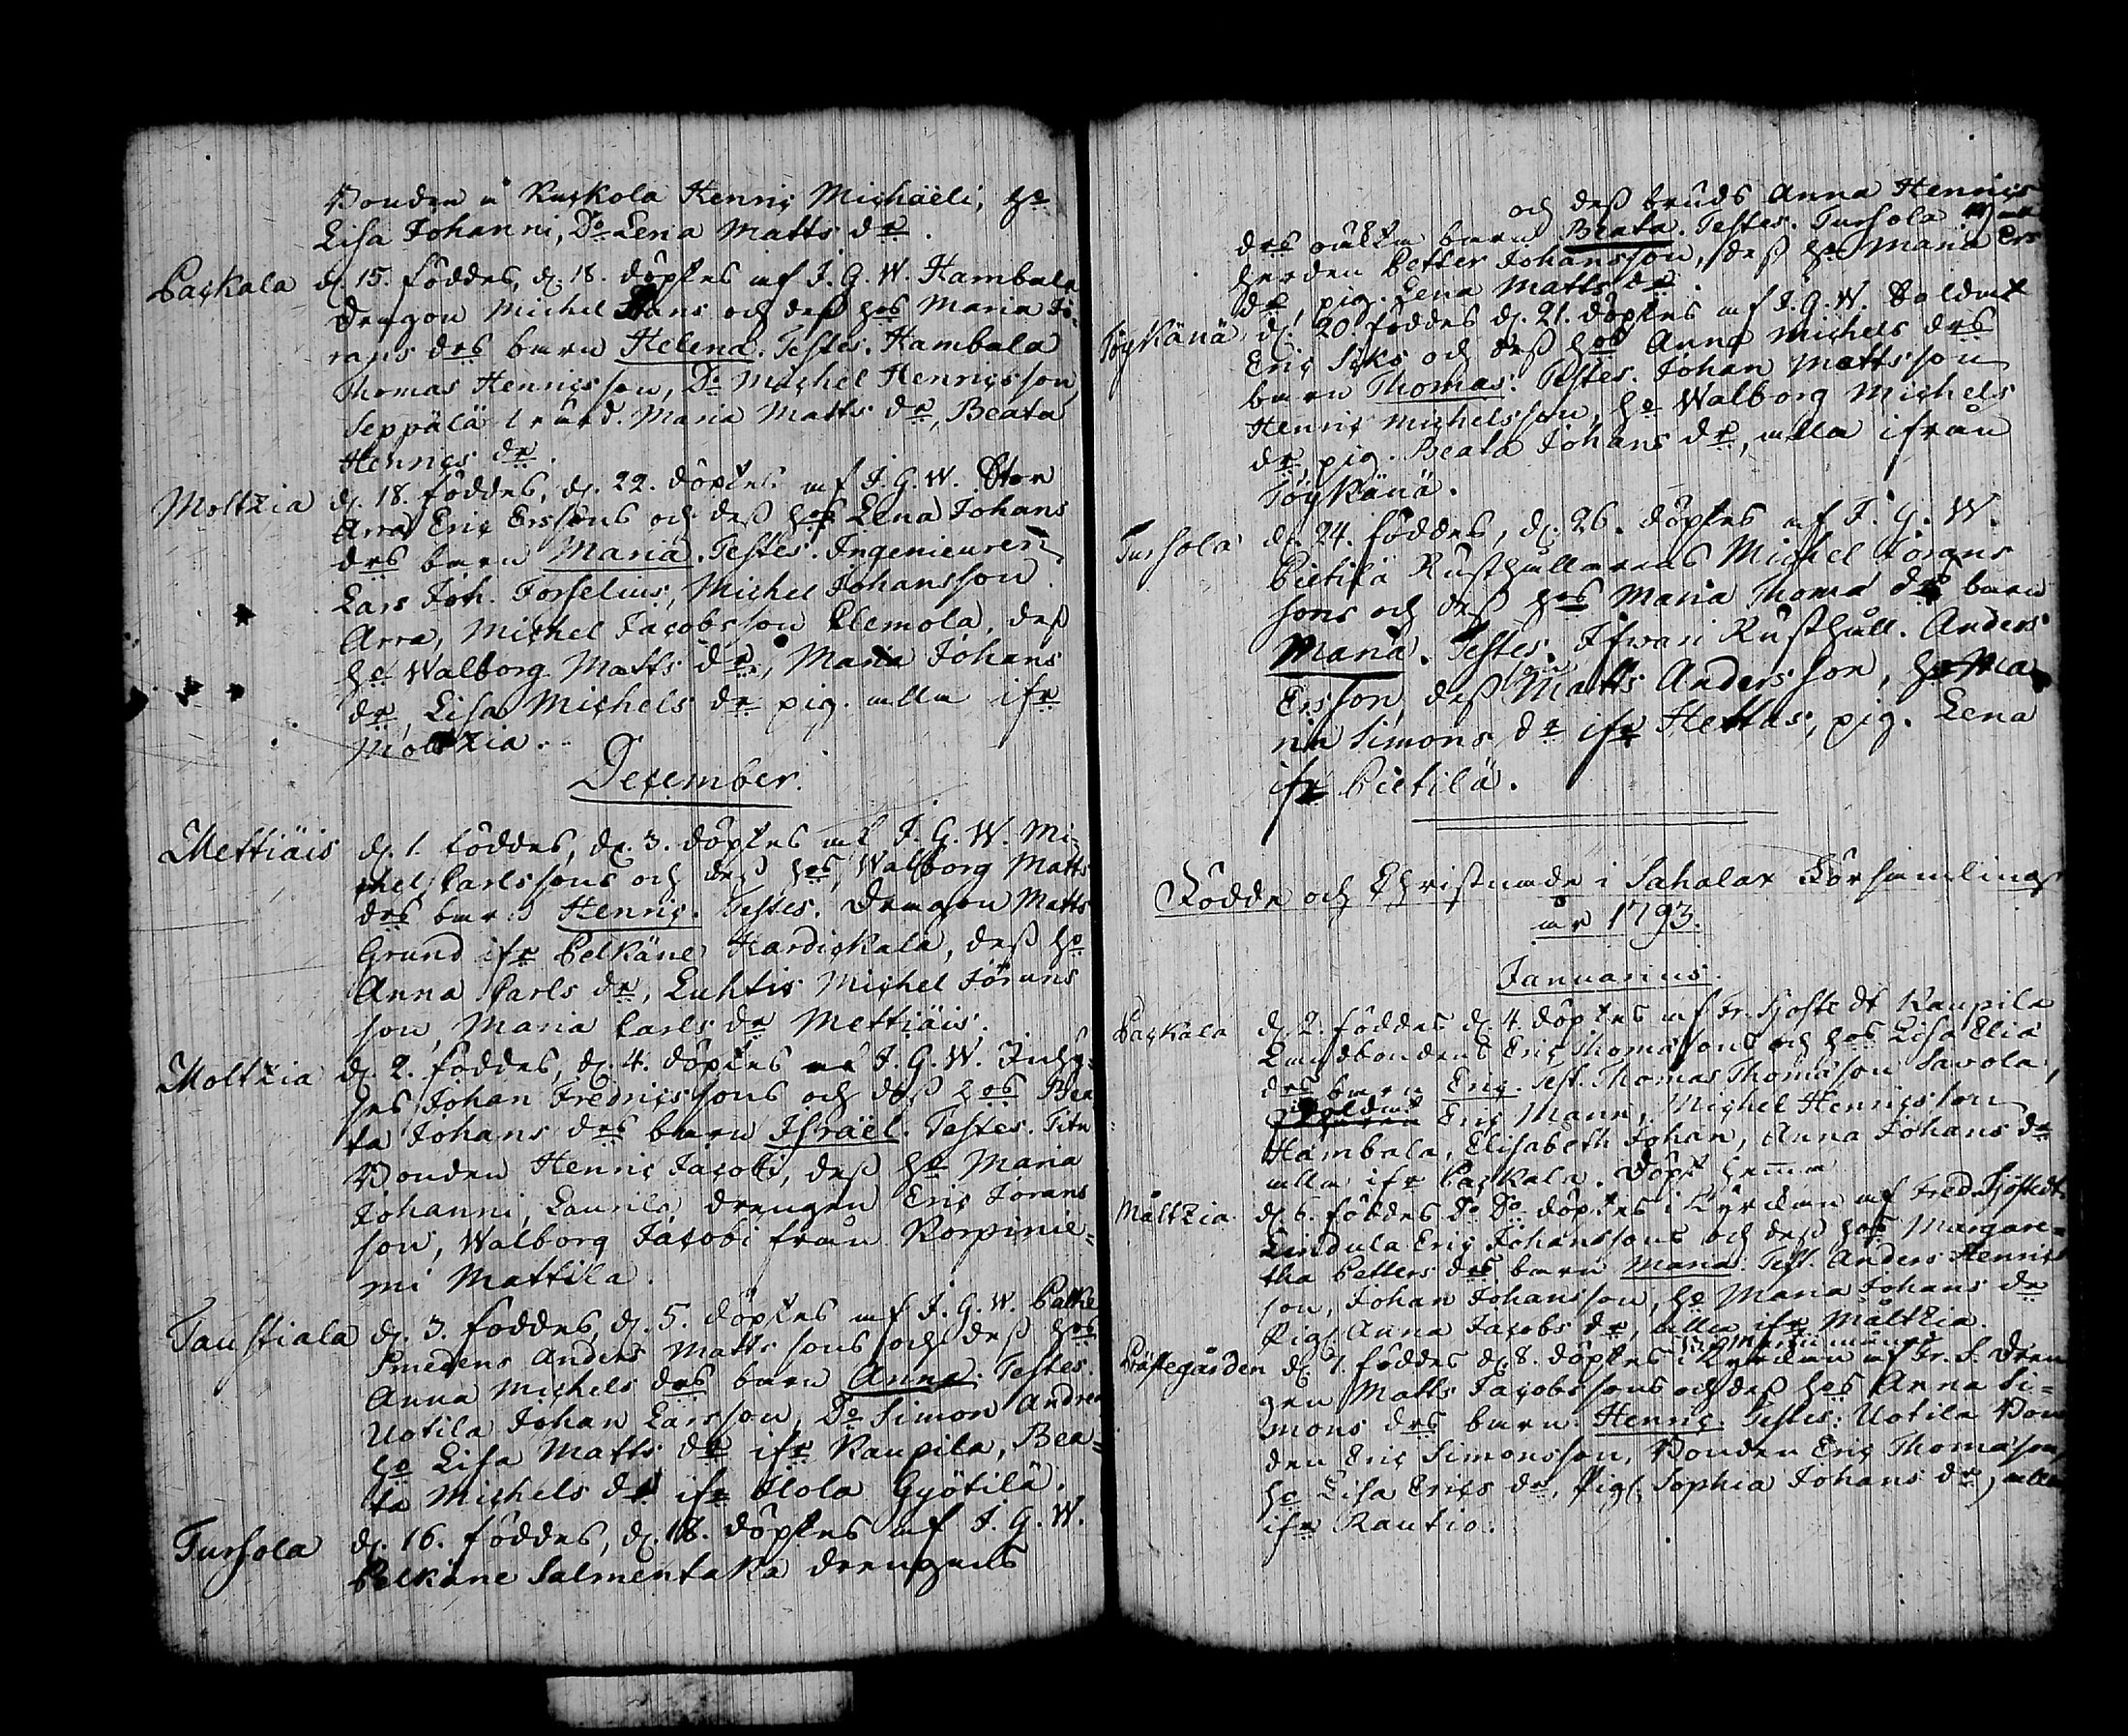 Bonden i Kuckola Henric Michaëli, ho
Lisa Johanni, Do Lena Matts dr.
Packala d. 15. föddes, d. 18. döptes af J. G. W. Hambala
Dragon Michel Hans och dess hos Maria Jö-
rans drs barn Helena. Testes. Hambala
Thomas Henricsson, Do Michel Henricsson,
Seppälä Maria Matts dr, Beata
Henrics dr.
Moltzia d. 18. föddes, d. 22. döptes af J. G. W. Stor
Arra Eric Erssons och dess hos Lena Johans
drs barn Maria. Testes. Ingenieuren
Lars Joh. Forselius, Michel Johansson
Arra, Michel Jacobsson Clemola, dess
ho Walborg Matts dr, Maria Johans
dr, Lisa Michels dr pig. alla ifr
Moltzia.
December.
Mettiäis d. 1. föddes, d. 3. döptes af J. G. W. Mi-
chel Carlssons och dess hos Walborg Matts
drs barn Henric. Testes. Dragon Matts
Grund ifr Pelkäne Hardickala, dess ho
Anna Carls dr, Luhtis Michel Jörans
son, Maria Carls dr Mettiäis.
Moltzia d. 2. föddes, d. 4. döptes af J. G. W. Inhy-
ses Johan Fredricssons och dess hos Bea
ta Johans drs barn Israël. Testes. Titu
Bonden Henric Jacobi, dess ho Maria
Johanni, Laurila drengen Eric Jörans
son, Walborg Jacobi från Korpinie-
mi Mattila.
Taustiala d. 3. föddes, d. 5. döptes af J. G. W.
Smedens Anders Matts sons och dess hos
Anna Michels drs barn Anna. Testes.
Uotila Johan Larsson, Do Simon Andrea
ho Lisa Matts dr ifr Kaupila, Bea-
ta Michels dr ifr Ilola Gyötilä.
Tursola d. 16. föddes, d. 18. döptes af J. G. W.
Pelkäne Salmentaka drengens
och dess bruds Anna Henrics
drs barn Beata. Testes. Tursola
herden Petter Johansson, dess ho Maria Ers
dr, pig. Lena Matts dr.
Töykänä, d. 20 föddes d. 21. döptes af J. G. W. Soldat
Eric Siks och dess hos Anna Michels drs
barn Thomas. Testes. Johan Mattsson
Henric Michelsson, ho Walborg Michels
dr, pig. Beata Johans dr, alla ifrån
Töykänä.
Tursola d. 24. föddes, d. 26. döptes af J. G. W.
Pietilä Rusthållarens Michel Jörans
sons och dess hos Maria Thoma drs barn
Maria. Testes. Isvari Rusthåll. Anders
Ersson, dess son Matts Andersson, ho Ma
ria Simons dr ifr Hettas, pig. Lena
ifr Pietilä.
Födde och Christnade i Sahalax Församling
år 1793.
Januarius.
Packala d. 2. föddes d. 4. döptes af Fr. Sjöstedt Kaupila
Landbondens Eric Thomassons och hos Lisa Elia
drs barn Eric. Test. Thomas Thomasson Savola,
Soldat Eric Mann, Michel Henricsson
Hambala, Elisabeth Johan, Anna Johans dr
alla ifr Packala. Döpt hemma
Måltzia d. 6. föddes Do Do döptes i Kyrckan af Fred. Sjöstedt
Lindula Eric Johanssons och dess hos Margare-
tha Petters drs barn Maria. Test. Anders Henrics
son, Johan Johansson, ho Maria Johans dr
Pig. Anna Jacobs dr, alla ifr Måltzia.
Prästegården d. 7. föddes d. 8. döptes i Kyrckan af Fr. S. Dren
gen Matts Jacobssons och dess hos Anna Si-
mons drs barn Henric. Testes: Uotila Bon
den Eric Simonsson, Bonden Eric Thomasson,
ho Lisa Erics dr, Pig. Sophia Johans dr, alla
ifr Rautio.